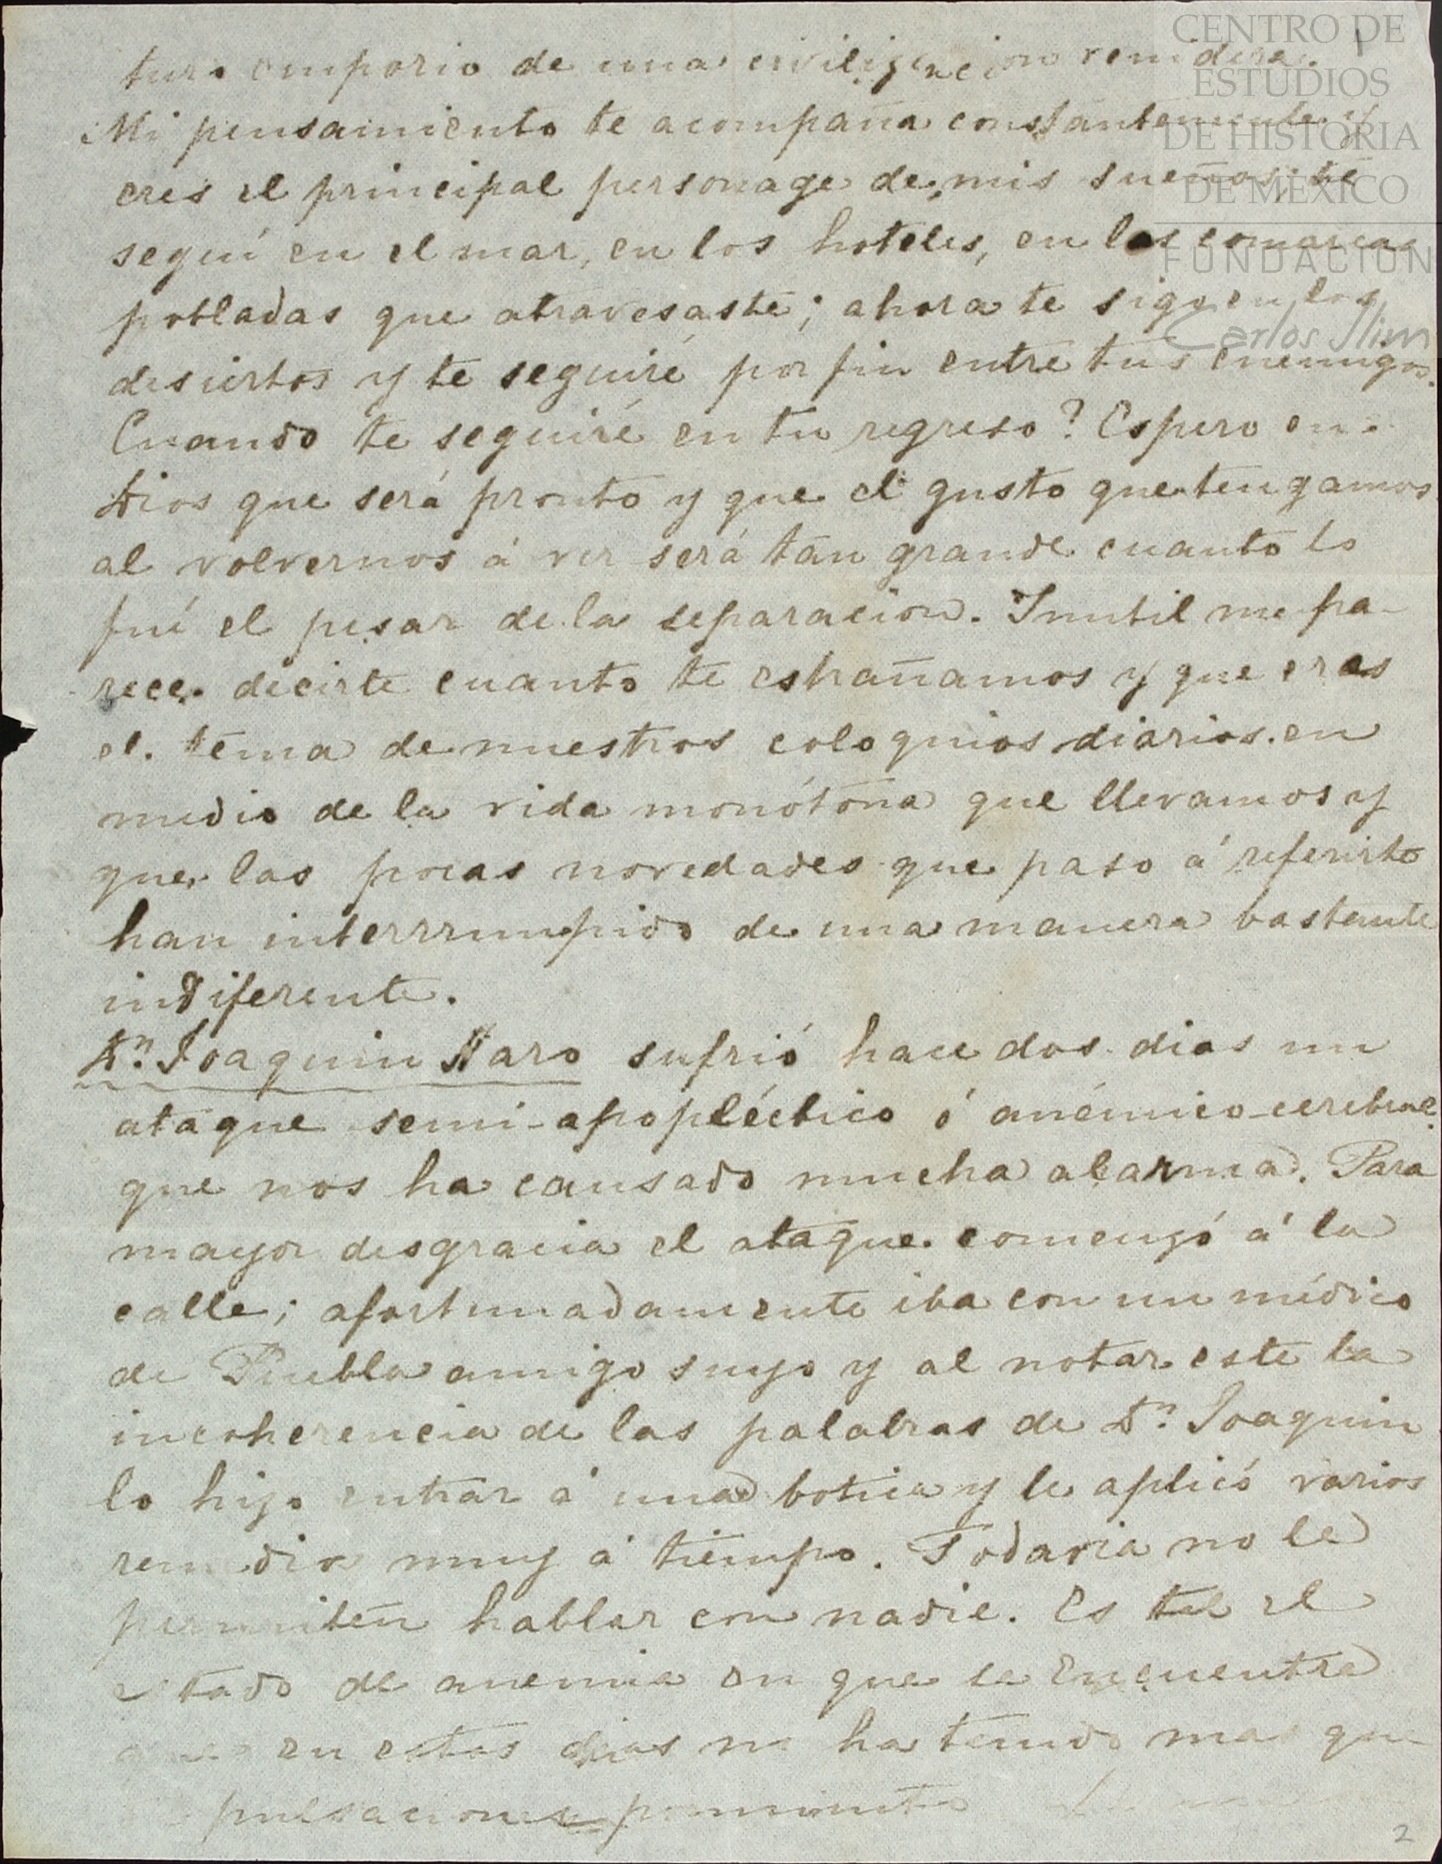 turo emporio de una civilizacion venidera.
Mi pensamiento te acompaña constantemente y
eres el principal personage de mis sueños; te
seguí en el mar, en los hoteles, en las comarcas
pobladas que atravesaste; ahora te sigo en los
desiertos y te seguiré por fin entre tus enemigos.
Cuando te seguiré en tu regreso? Espero en
Dios que será pronto y que el gusto que tengamos
al volvernos á ver será tan grande cuanto lo
fué el pesar de la separacion. Inutil me pa-
rece decirte cuanto te estrañamos y que eres
el tema de nuestros coloquios diarios en
medio de la vida monótona que llevamos y
que las pocas novedades que paso á referirte
han interrrumpido de una manera bastante
indiferente.
Dn. Joaquin Haro sufrió hace dos dias un
ataque semi-apopléctico ó anémico-cerebral
que nos ha causado mucha alarma. Para
mayor desgracia el ataque comenzó á la
calle; afortunadamente iba con un médico
de Puebla amigo suyo y al notar este la
incoherencia de las palabras de Dn. Joaquin
lo hizo entrar á una botica y le aplicó varios
remedios muy á tiempo. Todavia no le
permiten hablar con nadie. Es tal el
estado de anemia en que se encuentra
que en estos dias no ha tenido mas que
pulsaciones por minuto
2
CENTRO DE
ESTUDIOS
DE HISTORIA
DE MÉXICO
FUNDACIÓN
Carlos Slim